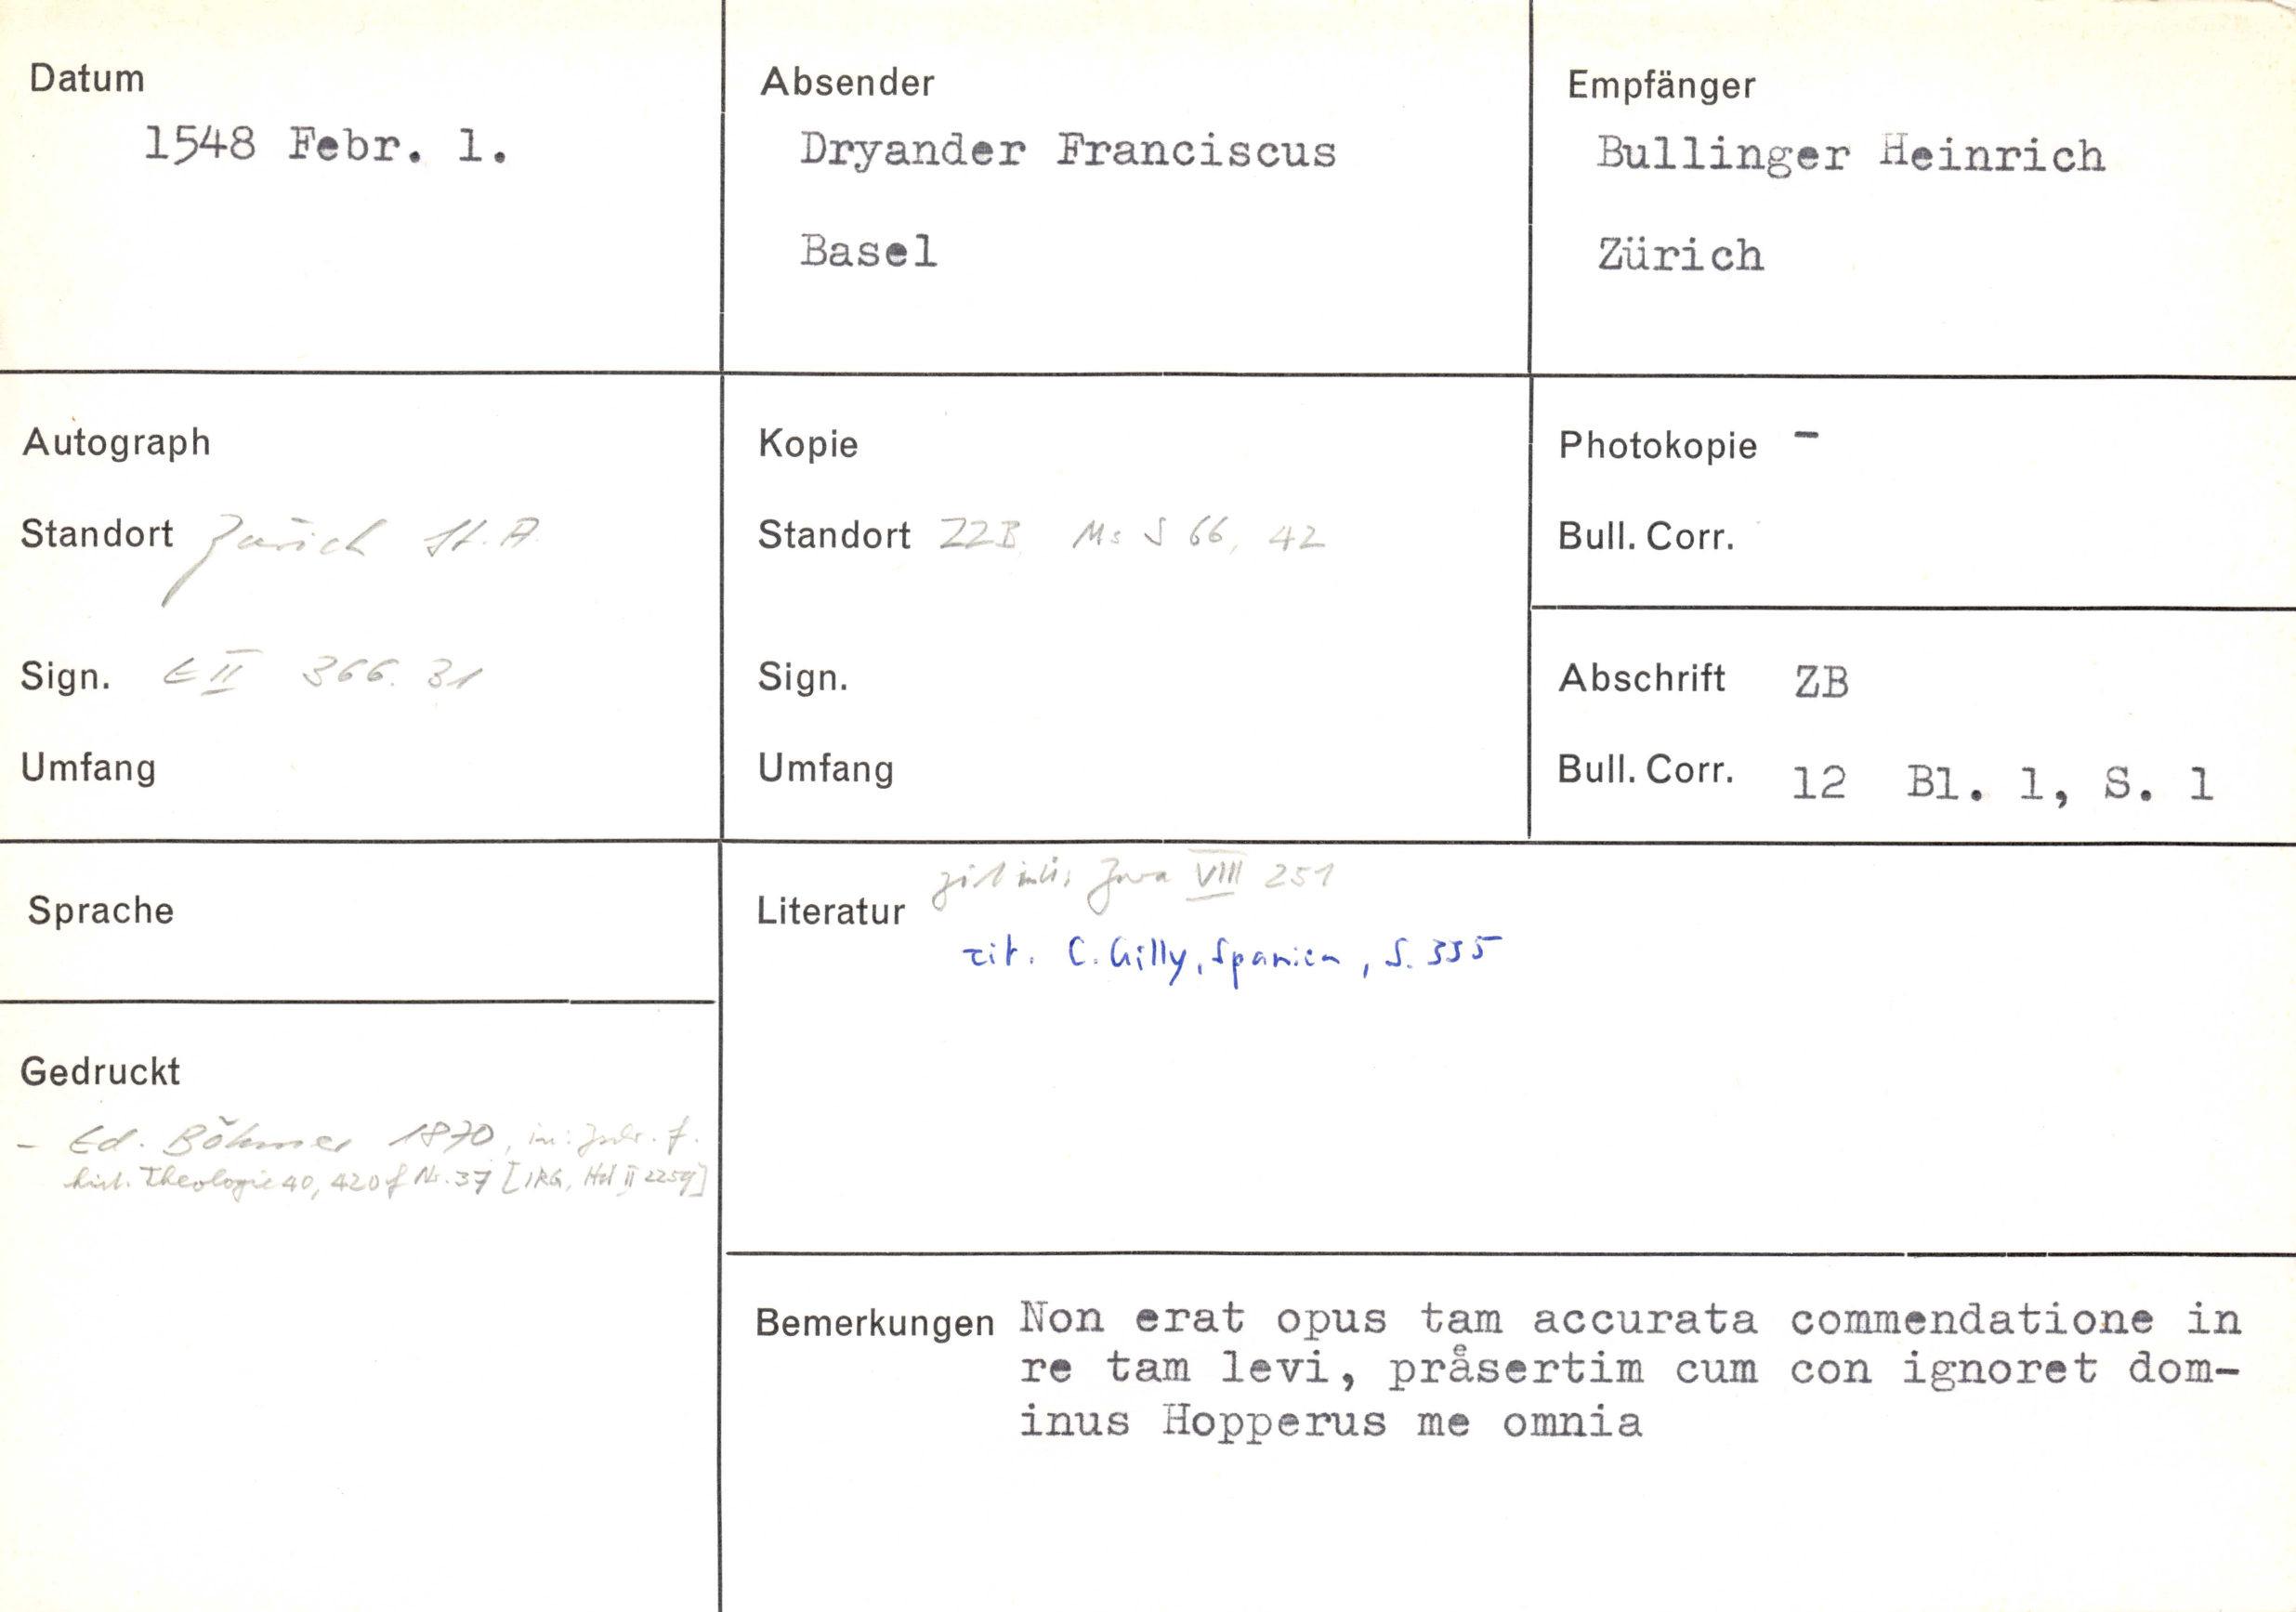 Datum
1548 Febr. 1.
Absender
Dryander Franciscus
Basel
Empfänger
Bullinger Heinrich
Zürich
Autograph
Standort Zürich St. A.
Sign. E II 366. 31
Umfang
Kopie
Standort ZZB Ms S 66, 42
Sign.
Umfang
Photokopie -
Bull. Corr.
Abschrift ZB
Bull. Corr. 12 Bl. 1, S. 1
Sprache
Gedruckt
- Ed. Böhmer 1870, in: f.
hist. Theologie 40, 420 f Nr. 37 [IRG, Hd II 2259]
Zwa VIII 251
Literatur
zit. C. Gilly, Spanien, S. 335
Bemerkungen Non erat opus tam accurata commendatione in
re tam levi, praͤsertim cum con ignoret dom-
inus Hopperus me omnia